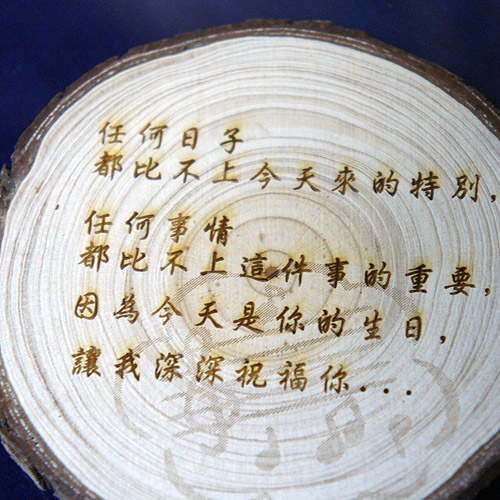 任何日子
都比不上今天來的特別,
任何事情
都比不上這件事的重要,
因為今天是你的生日,
讓我深深祝福你...